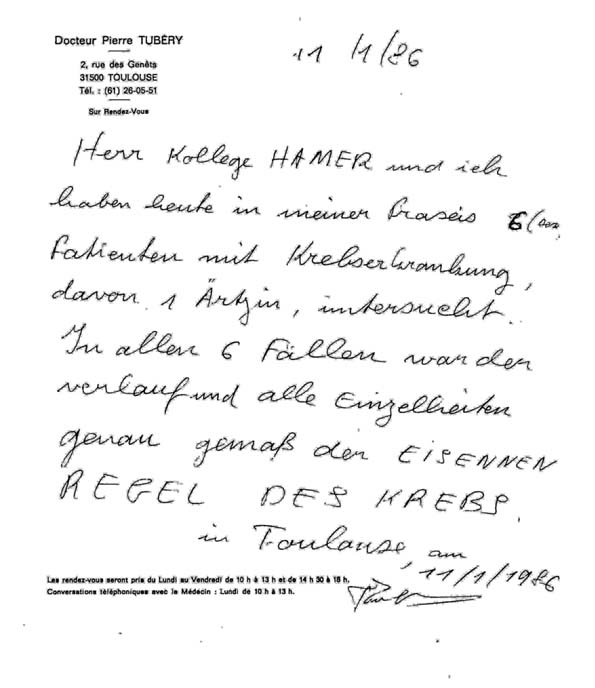 Docteur Pierre TUBÉRY
2, rue des Genêts
31500 TOULOUSE
Tél. : (61) 26-05-51
Sur Rendez-Vous
11/1/86
Herr Kollege HAMER und ich
haben heute in meiner Praxis 6
Patienten mit Krebserkrankung,
davon 1 Ärtzin, untersucht.
In allen 6 Fällen war der
verlauf und alle Einzelheiten
genau gemäß der EISENNEN
REGEL DES KREBS.
in Toulouse, am
11/1/1986
Les rendez-vous seront pris du Lundi au Vendredi de 10 h à 13 h et de 14 h 30 à 18 h.
Conversations téléphoniques avec le Médecin : Lundi de 10 h à 13 h.